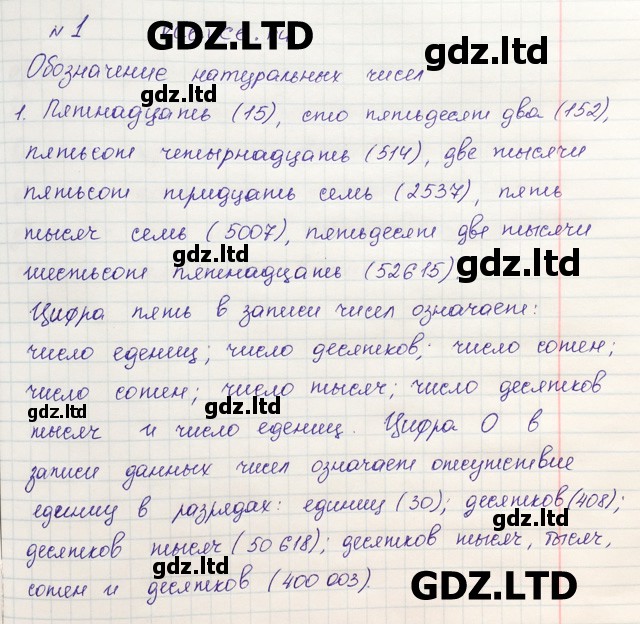 № 1 GDZ.LTD
Обозначение натуральных чисел
gdz.ltd gdz.ltd
1. Пятнадцать (15), сто пятьдесят два (152),
пятьсот четырнадцать (514), две тысячи
пятьсот тридцать семь (2537), пять
тысяч семь (5007), пятьдесят две тысячи
gdz.ltd gdz.ltd
шестьсот пятнадцать (52615)
Цифра пять в записи чисел означает:
число едениц; число десятков; число сотен;
число сотен; число тысяч; число десятков
gdz.ltd gdz.ltd
тысяч и число едениц. Цифра 0 в
записи данных чисел означает отсутствие
единиц в разрядах: единиц (30); десятков (408);
gdz.ltd
десятков тысяч (50618); десятков тысяч, тысяч,
сотен и десятков (400 003).
gdz.ltd GDZ.LTD